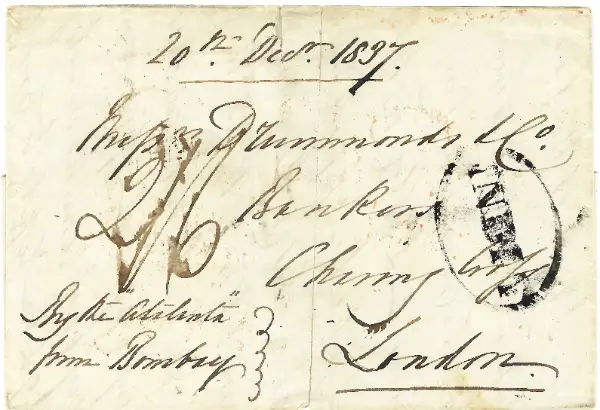 20th Decr. 1837.
Messrs Drummonds & Co.
2/6
Bankers
Charing Cross
London.
By the "Atalanta"
from Bombay